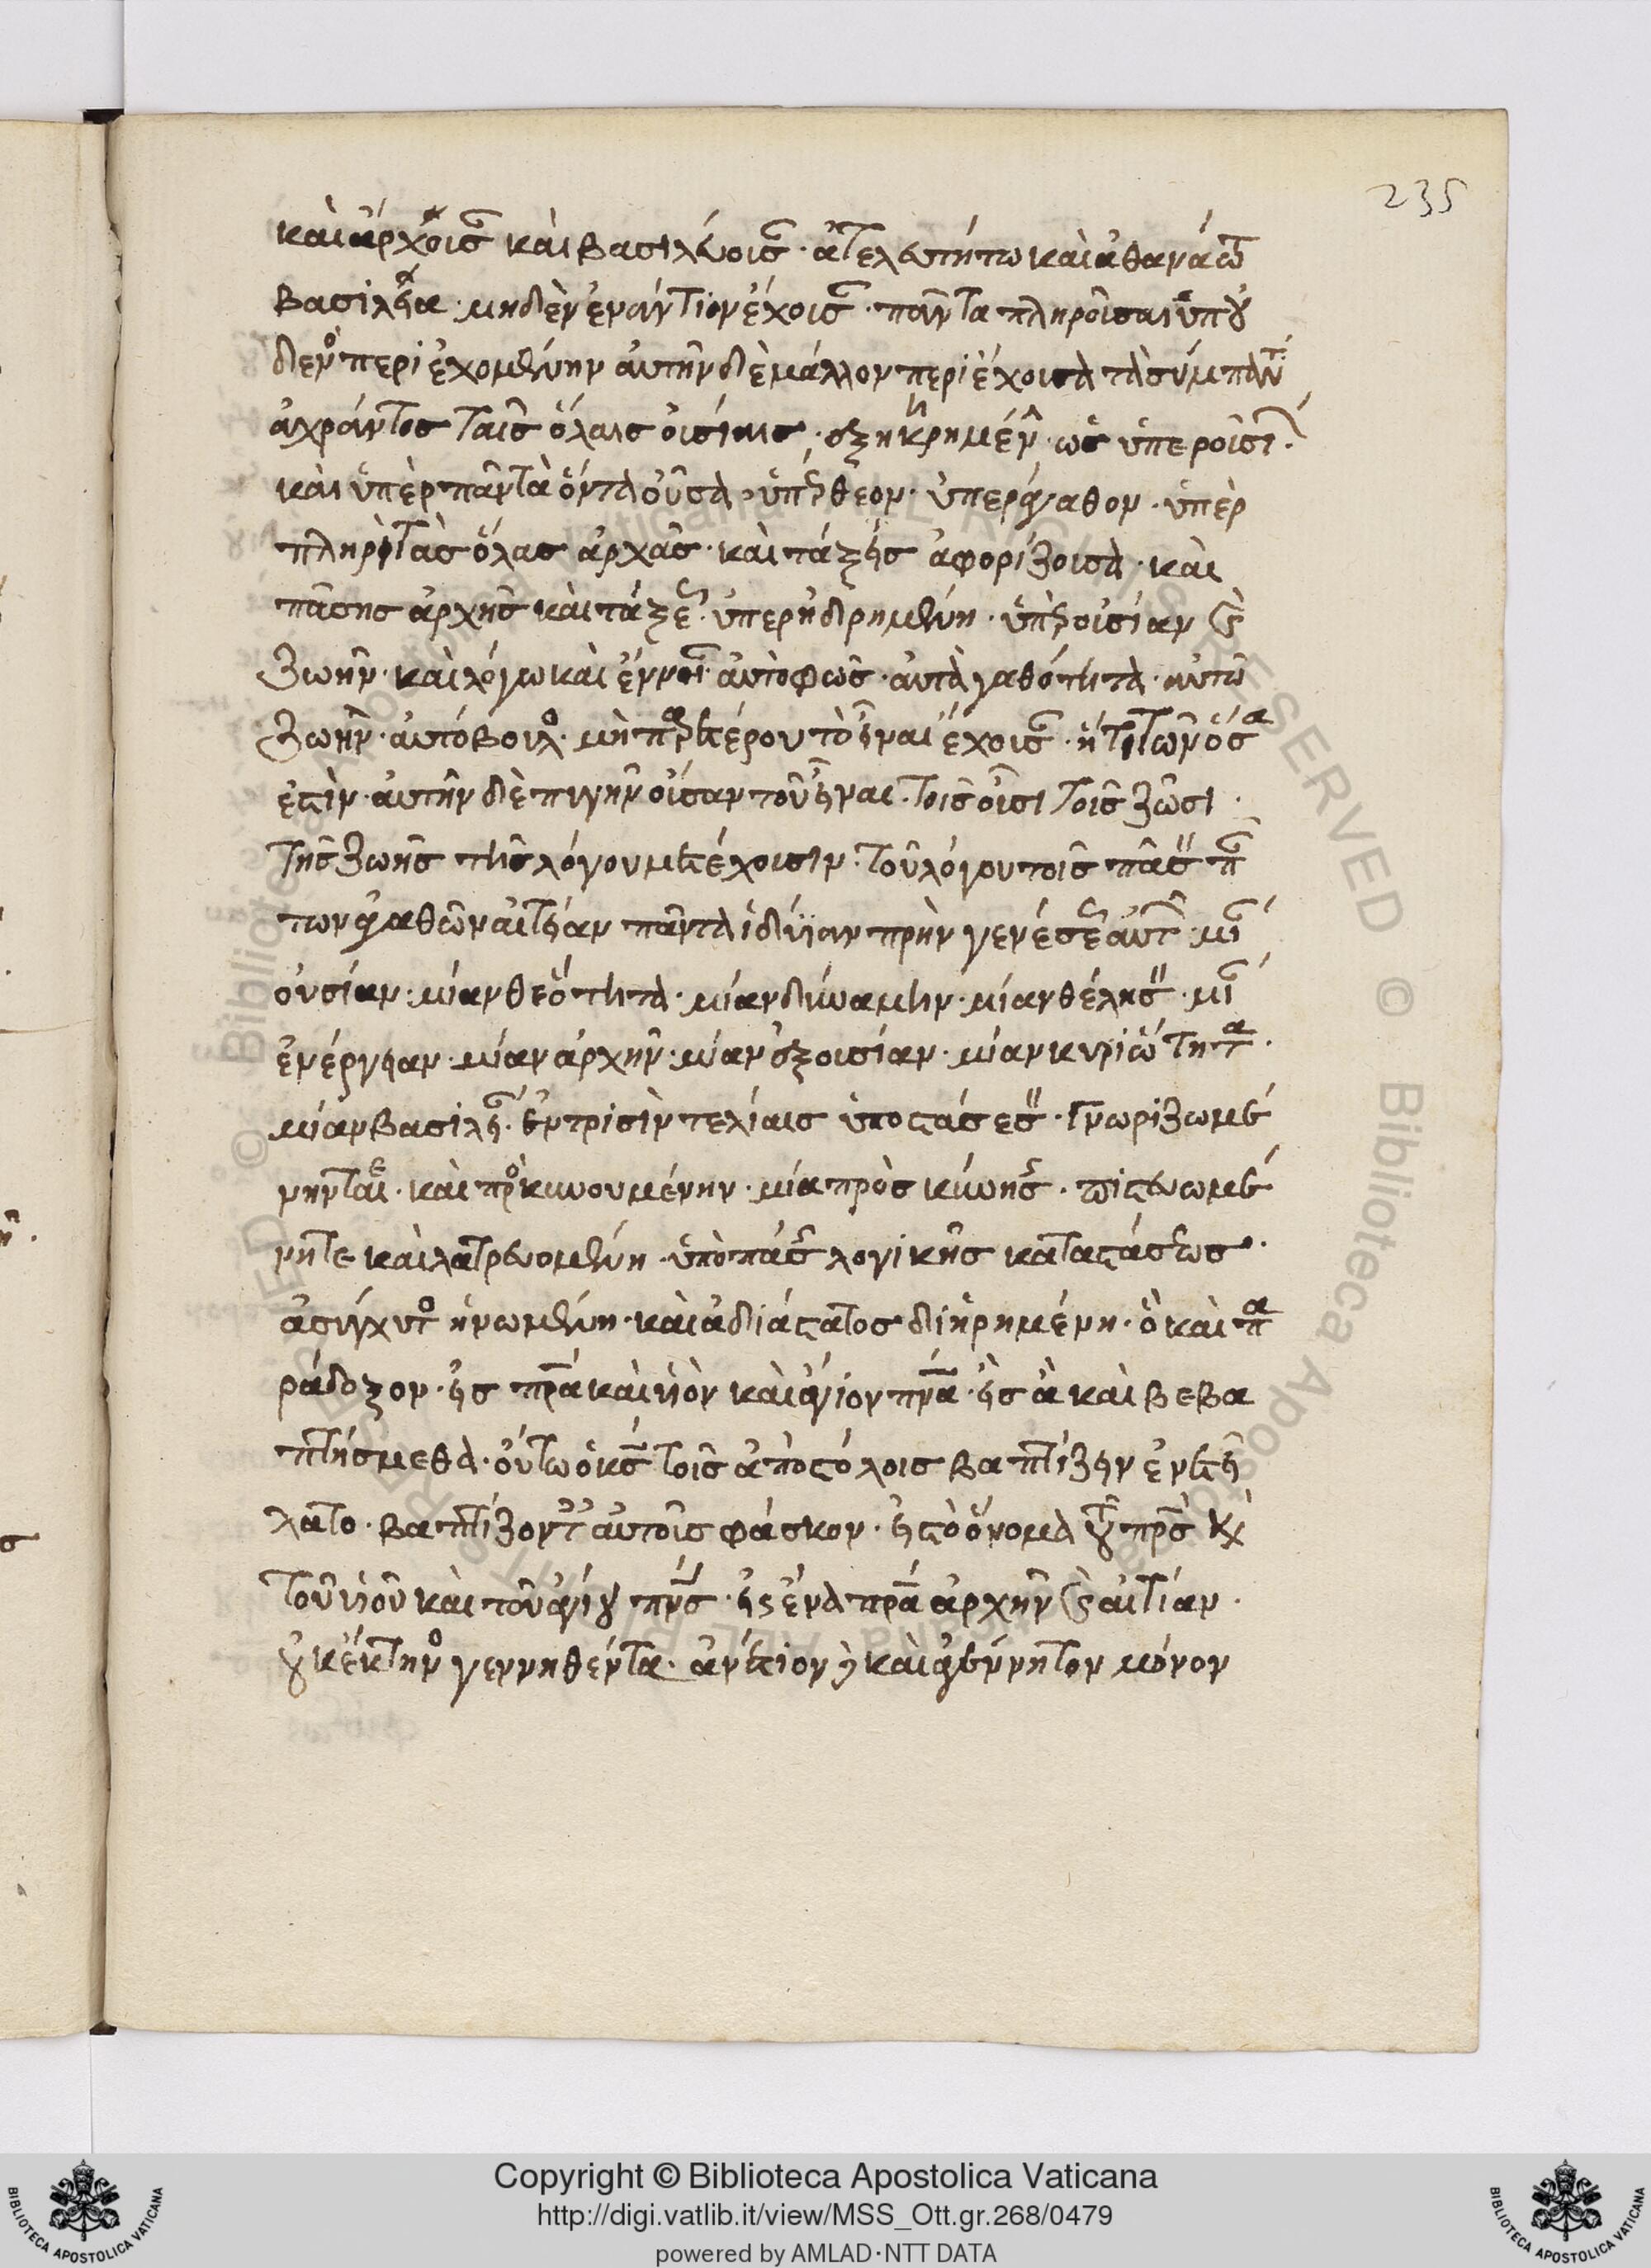 235
καὶ ἄρχουσα καὶ βασιλεύουσα · ἀτελευτήτω καὶ ἀθανάτω
βασιλεία · μηδὲν ἐναντίον ἔχουσα · πάντα πληροῦσαν ὑπ οὐ
δενὸς περιεχομένην αὐτὴν δὲ μάλλον περιέχουσα τὰ σύμπαντα
ἀχράντος ταῖς ὅλαις οὐσίαις · ἐξηκρημένην ὡς ὑπερούσι
καὶ ὑπὲρ πάντα ὄντα οὖσα · ὑπέρθεον · ὑπεράγαθον · ὑπὲρ
πλήρη τὰς ὅλας ἀρχὰς · καὶ τάξεις ἀφορίζουσα · καὶ
πάσης ἀρχῆς καὶ τάξεως ὑπερηδρημένη · ὑπὲρ οὐσίαν καὶ
ζωὴν · καὶ λόγω καὶ ἔννοιαν αὐτὸ φῶς · αὐτὰγαθότητα · αὐτω
ζωὴν · αὐτόβουλον · μὴ παρ ετέρου τὸ εἶναι ἔχουσα · ἤ τι τῶν ὅσα
ἐστὶν · αὐτὴν δὲ πηγὴν οὖσαν τοῦ εἶναι · τοῖς οὖσι τοῖς ζῶσι ·
τῆς ζωῆς τῆς λόγου μετέχουσιν · τοῦ λόγου τοῖς πᾶσι
των ἀγαθῶν αἰτείαν πάντα ἰδυίαν πρὴν γενέσεως αὐτῶν · μίαν
οὐσίαν · μίαν θεότητα · μίαν δύναμην · μίαν θέλησιν · μίαν
ἐνέργειαν · μίαν ἀρχὴν · μίαν ἐξουσίαν · μίαν κυριώτητα ·
μίαν βασιλείαν · ἐν τρισὶν τελίαις ὑποστάσεσιν · γνωριζωμέ
νην ται · καὶ προσκυνουμένην · μία προσκύνησιν · πιστευωμέ
νην τε καὶ λατρευομένη · ὑπὸ πάσης λογικῆς καταστάσεως ·
ἀσυγχύτος ἡνωμένη · καὶ ἀδιάστατος διηρημένη · ὃ καὶ πα
ράδοξον · εἰς πρα καὶ υἱὸν καὶ ἅγιον πνα · εἰς ἃ καὶ βεβα
πτήσμεθα · οὕτω ὁ κς τοῖς ἀποστόλοις βαπτίζειν ἐντεί
λατο · βαπτίζοντες αὐτοὺς φάσκον · εἰς τὸ ὄνομα τοῦ πρς καὶ
τοῦ υἱοῦ καὶ τοῦ ἁγίου πνς · εἰς ἕνα πρα ἀρχὴν καὶ αἰτίαν ·
οὐκ ἔκ τηνος γεννηθέντα · ἀνέτιον δὲ καὶ ἀγέννητον μόνον
Copyright © Biblioteca Apostolica Vaticana
http://digi.vatlib.it/view/MSS_Ott.gr.268/0479
powered by AMLAD·NTT DATA